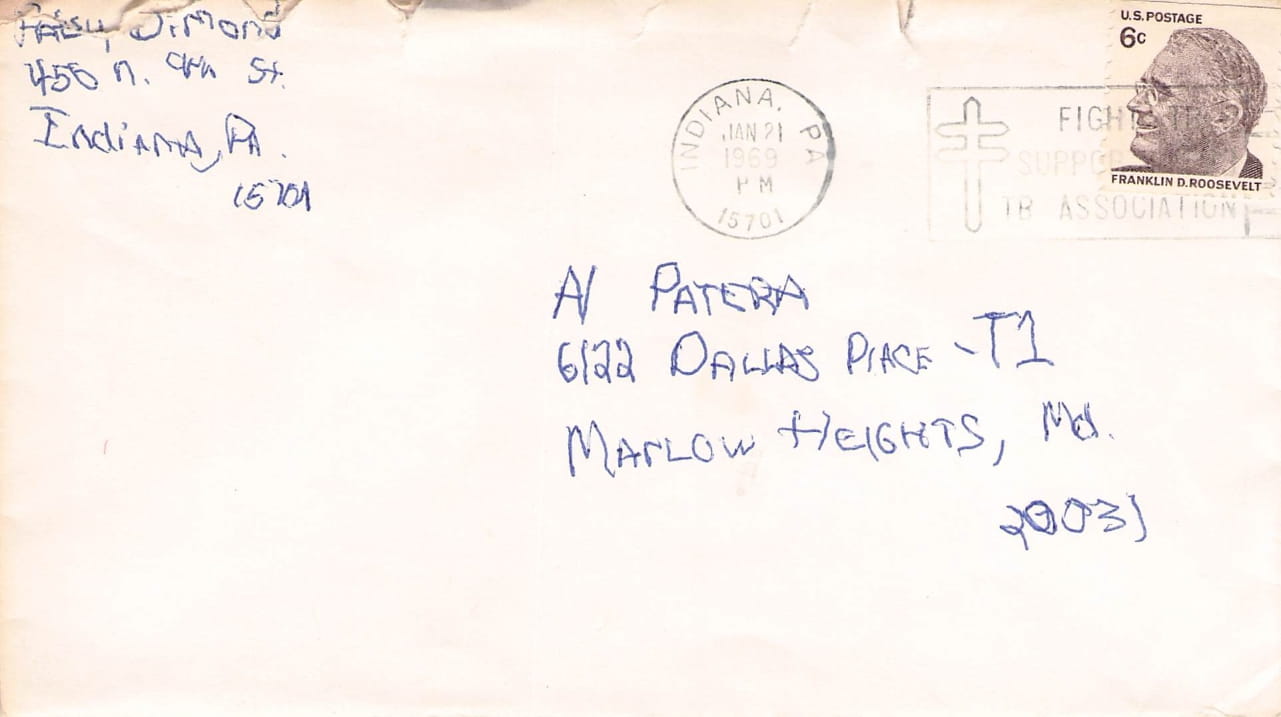 Patsy Jimond
455 N. 9th St.
Indiana, PA.
15701
INDIANA, PA
JAN 21
1969
PM
15701
U.S. POSTAGE
6c
FRANKLIN D. ROOSEVELT
FIGHT
SUPPOR
TB ASSOCIATION
Al PATERA
6122 DALLAS PlACE - T1
MARLOW HEIGHTS, Md.
20031